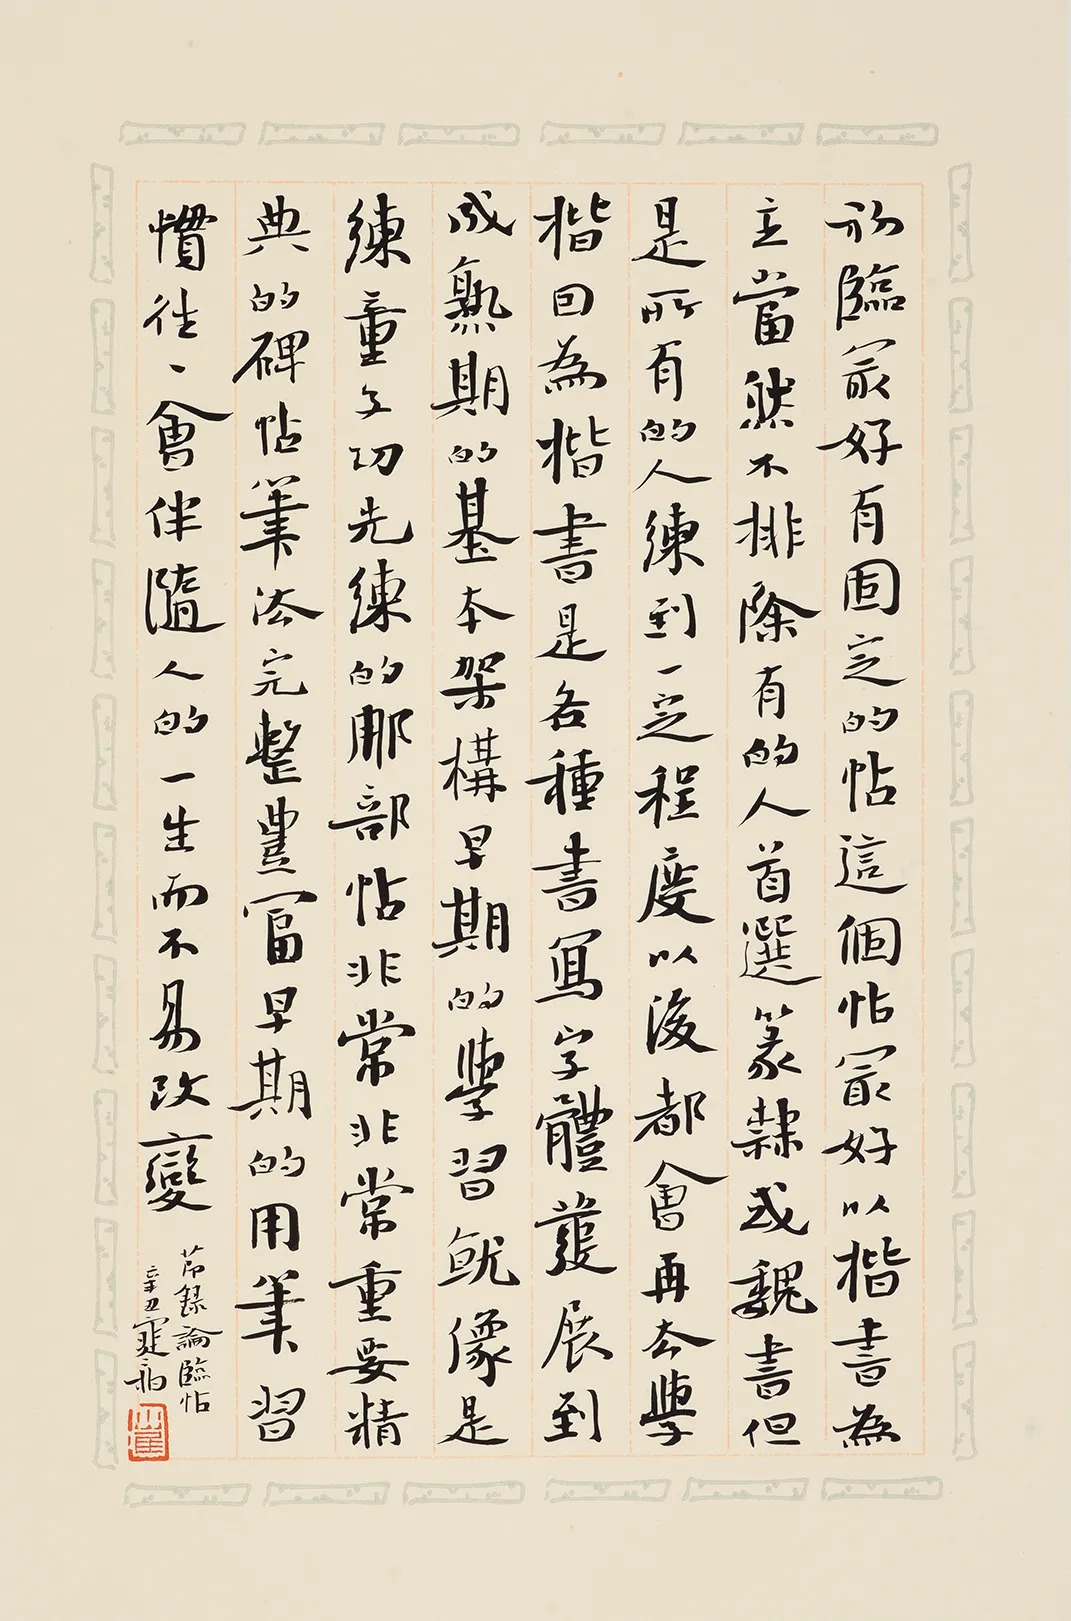 初臨最好有固定的帖這個帖最好以楷書為
主當然不排除有的人首選篆隸或魏書但
是所有的人練到一定程度以後都會再去學
楷回為楷書是各種書寫字體發展到
成熟期的基本架構早期的學習就像是
練童子功先練的那部帖非常非常重要精
典的碑帖筆法完整豐富早期的用筆習
慣往、會伴隨人的一生而不易改變
節錄論臨帖
辛丑寒